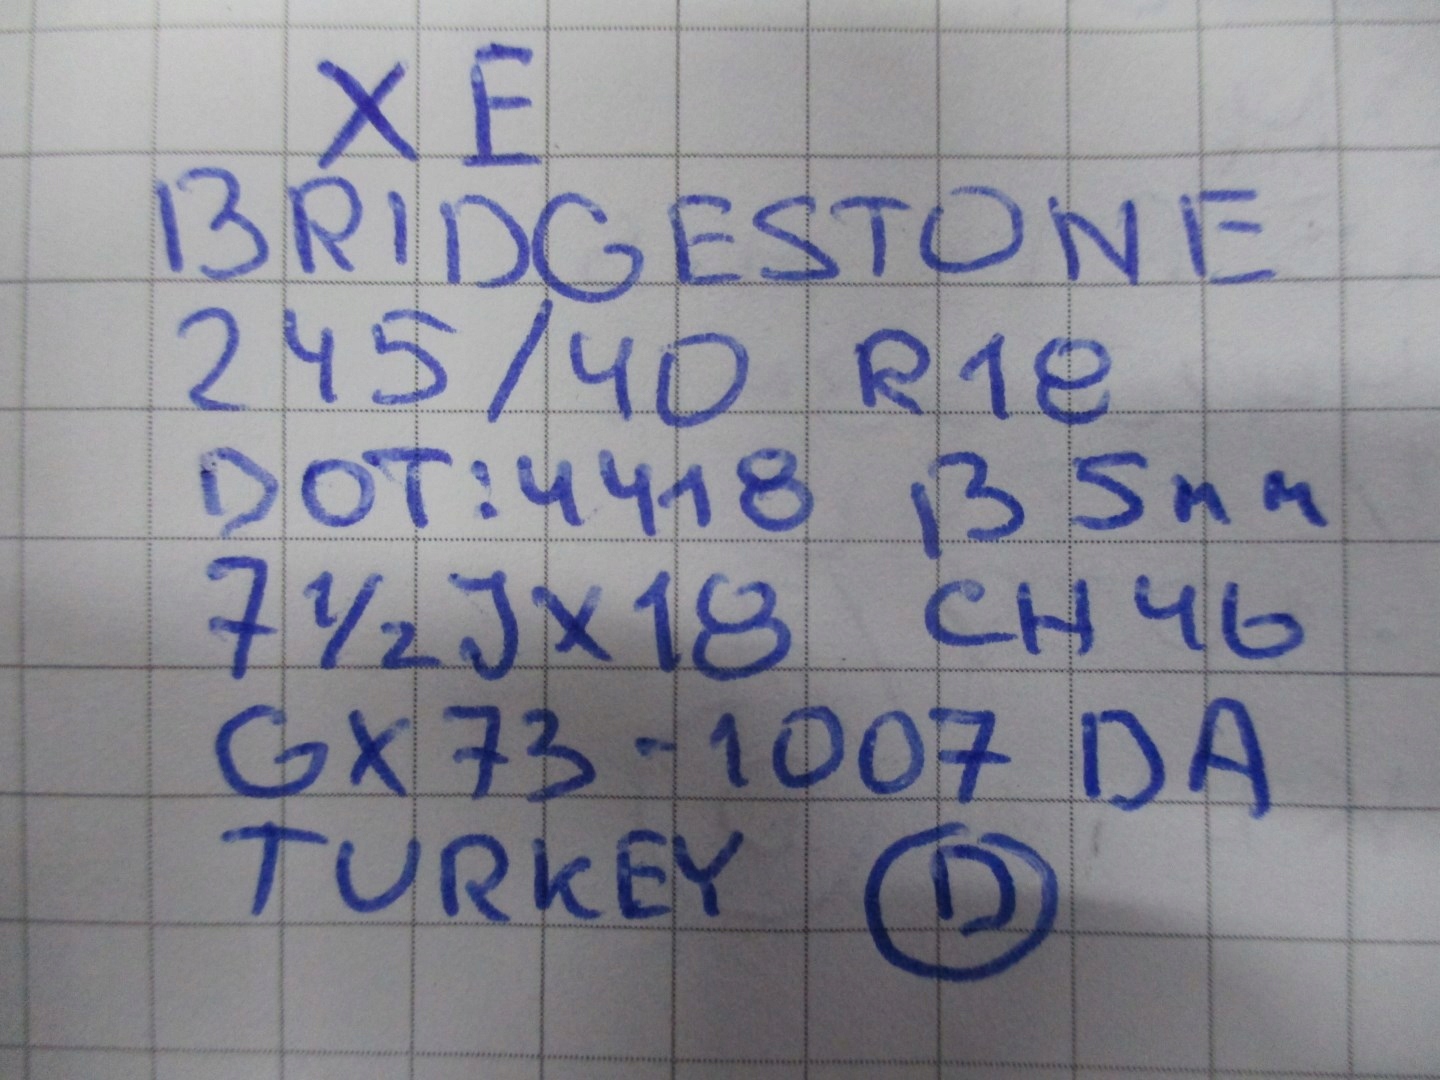 XE
BRIDGESTONE
245/40 R18
DOT:4418 B 5mm
7 1/2 J X 18 CH 46
GX73-1007 DA
TURKEY D